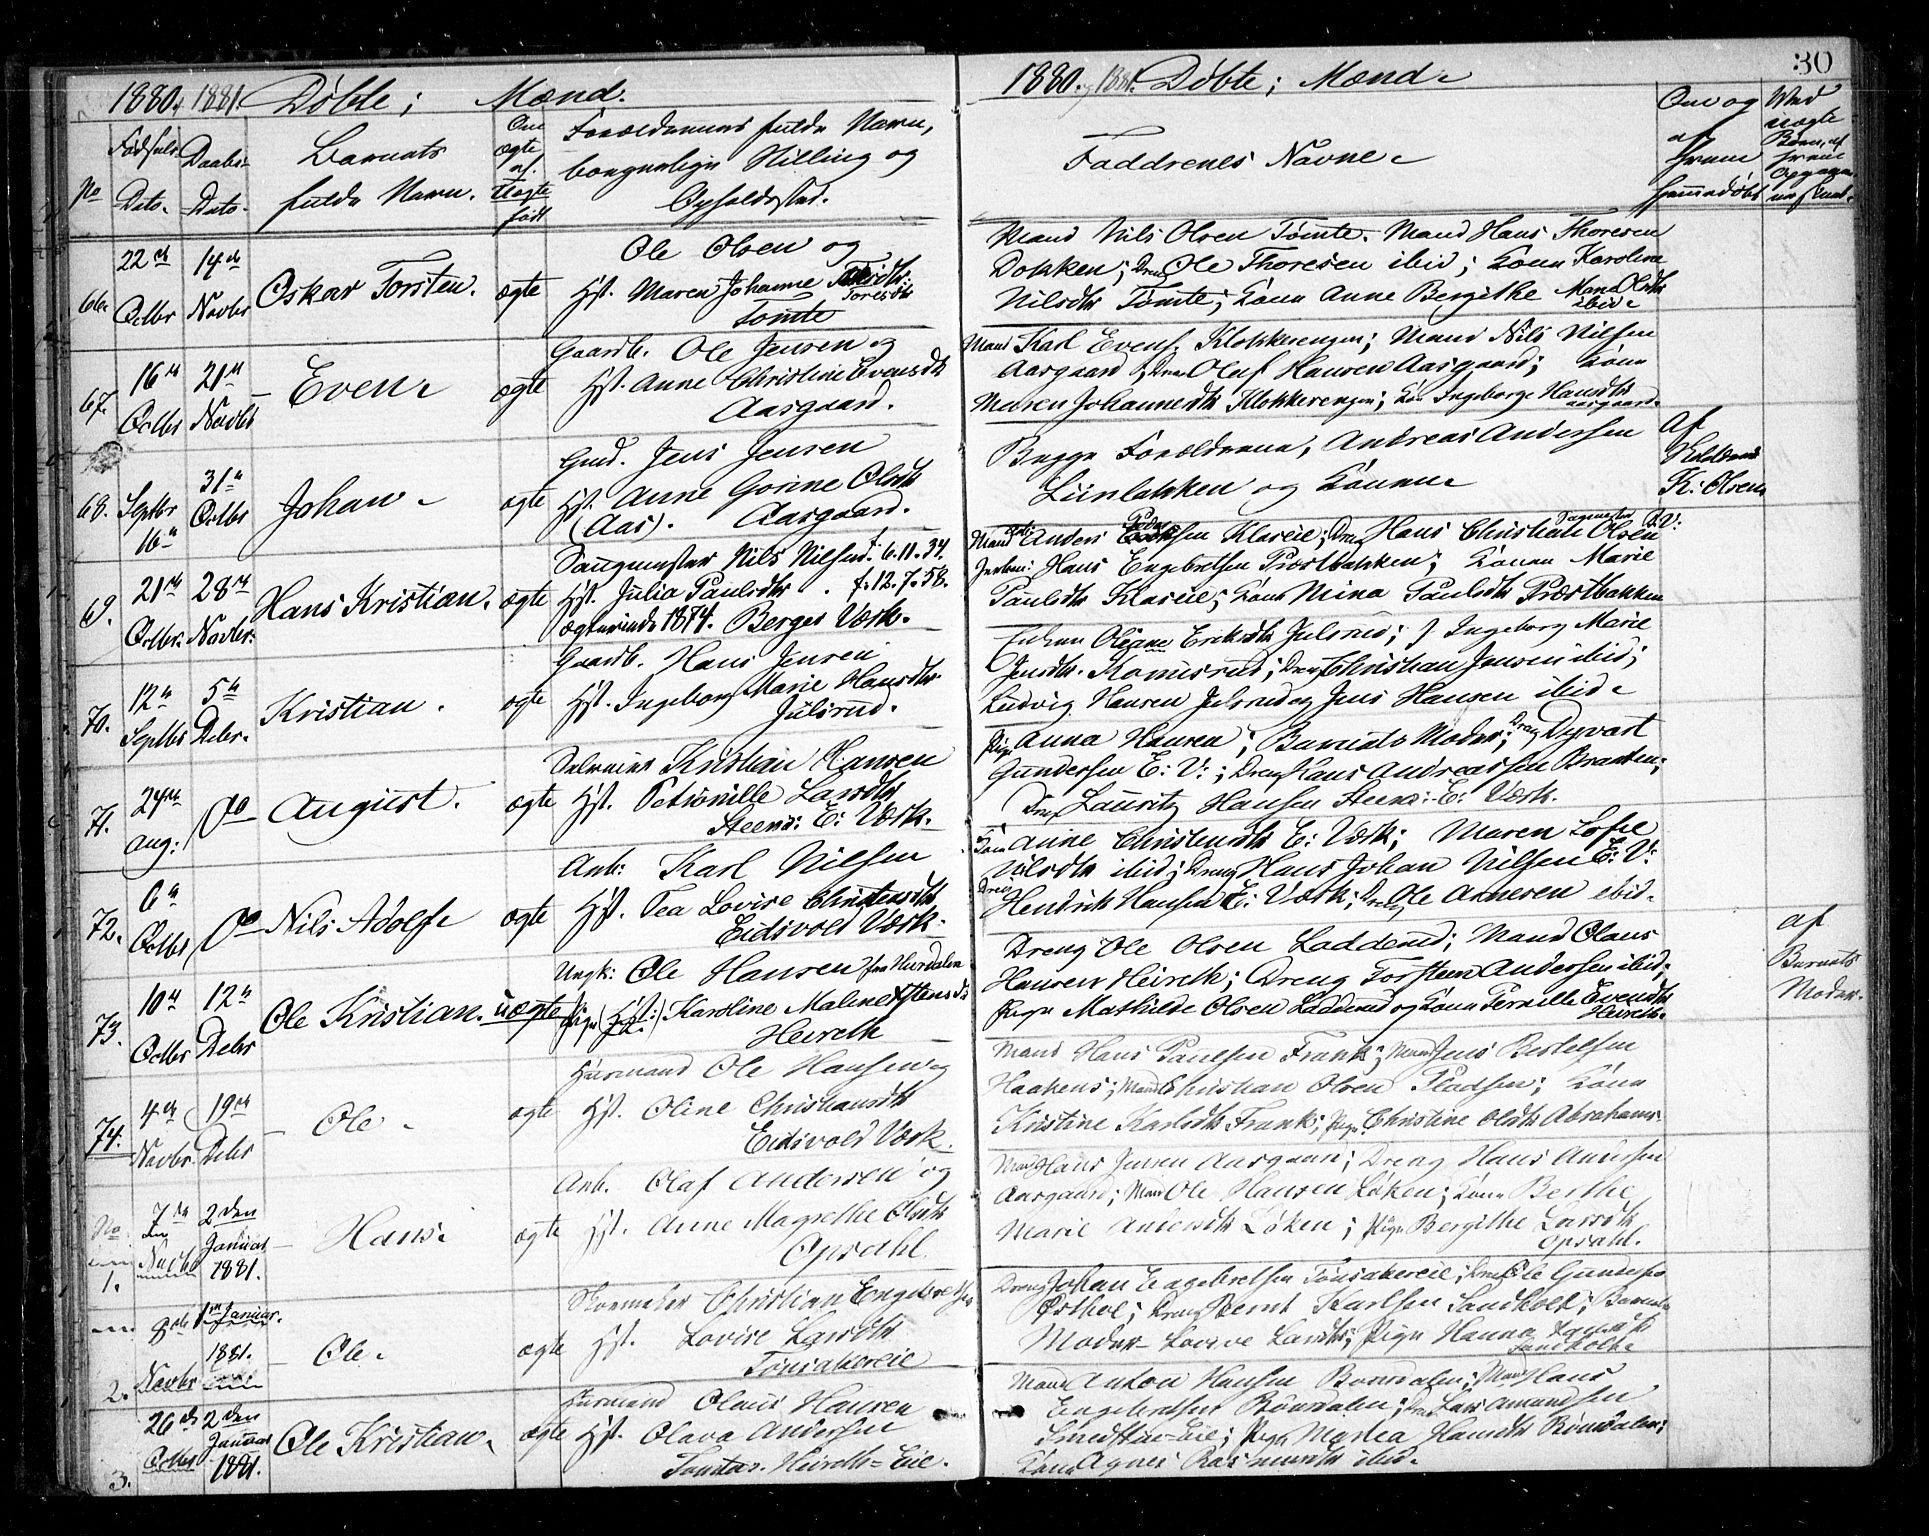 1880 & 1881. Døbte; Mænd.
No
Fødsels Dato.
Daabs Dato.
Barnets fulde Navn.
Om ægte el. uægte født
Forældrenes fulde Navn, borgerlige Stilling og Opholdssted.
66.
22de Octbr
14de Novbr
Oskar Torsten.
ægte
Ole Olsen og
Hst. Maren Johanne Toresdtr
Tømte
67.
16de Octbr
21de Novbr
Even
ægte
Gaardb. Ole Jensen og
Hst. Anne Christine Evensdtr
Aasgaard.
68.
Septbr 16de
31te Octbr
Johan
ægte
Gmd. Jens Jensen
Hst. Anne Gorine Olsdtr
(Aas). Aasgaard.
69.
21de Octbr.
28de Novbr.
Hans Kristian.
ægte
Saugmester Nils Nilsen f. 6.11.34.
Hst. Julia Paulsdtr . f. 12.7.58.
Ægteviede 1874. Berger Værk.
70.
12te Septbr
5te Decbr.
Kristian.
ægte
Gaardb. Hans Jensen
Hst. Ingeborg Marie Hansdtr
Julsrud.
71.
24de Aug:
Do
August.
ægte
Kristian Hansen
Hst. Petronille Larsdtr
Steens: E: Værk.
72.
6te Octbr
Do
Nils Adolf
ægte
Arb: Karl Nilsen
Hst. Tea Lovise Christensdtr
Eidsvold Værk.
73.
10de Octbr
12te Decbr
Ole Kristian.
uægte
Ungk: Ole Hansen fra Hurdalen
Pige Karoline Maline
Heireth
74.
4de Novbr.
19de Decbr
Ole
ægte
Huusmand Ole Hansen og
Hst. Oline Christiansdtr
Eidsvold Værk.
No 1.
7de Novbr
2den Januar 1881.
Hans
ægte
Arb. Olaf Andersen og
Hst. Anne Magrethe Olsdtr
Opsahl.
2.
8de Novbr
1ste Januar. 1881.
Ole
ægte
Skomaker Christian Engebretsen
Hst. Lovise Larsdtr
Tønsakereie
3.
26de Octbr
2den Januar 1881.
Ole Kristian
ægte
Husmand Olaus Hansen
Hst. Olava Andersen
Heireth=Eie.
1880 & 1881. Døbte; Mænd.
30
Faddrenes Navne.
Om og af Hvem hjemmedøbt
Ved uægte Børn, af hvem
Mand Nils Olsen Tømte. Mand Hans Thoresen
Dokken; Dreng Ole Thoresen ibid; Kone Karoline
Nilsdtr Tømte; Kone Anne Bergithe Olsdtr
ibid.
Mand Karl Evens. Klokkerengen; Mand Nils Nilsen
Aasgaard; Dreng Oluf Hansen Aasgaard; Kone
Maren Johannesdtr Klokkerengen; Ingeborge Hansdtr
Aasgaard.
Begge Forældrene, Andreas Andersen
Liinbakken og Konen
af
K: Olsen
Mand Anders Pedersen Klareie; Dreng Hans Christian Olsen B: V:
Hans Engebretsen Præstbakken; Konen Marie
Paulsdtr Klareie; Kone Mina Paulsdtr Præstbakken
Enken Oleane Eriksdtr Julsrud; P Ingeborg Marie
Jensdtr. Komisrud; Dreng Christian Jensen ibid;
Ludvig Hansen Julsrud og Jens Hansen ibid
Pige Anna Hansen; Barnets Moder; Dreng Dyvart
Gundersen E: V:; Dreng Hans Andreassen Braaten;
Dreng Lauritz Hansen Steens: E: Værk.
Kone Anne Christensdtr E: Værk; Maren Sofie
Nilsdtr ibid; Dreng Hans Johan Nilsen E: V:
Dreng Hendrik Hansen E: Værk; Dreng Ole Arnesen ibid.
Dreng Ole Olsen Ladderud; Mand Olaus
Hansen Heireth; Dreng Torsten Andersen ibid;
Pige Mathilde Olsen Ladderud og Kone Pernille Evensdtr
Heireth.
af
Barnets
Moder.
Mand Hans Paulsen Frank; Mand Jens Bertelsen
Haakens; Mand Christian Olsen Pladsen; Kone
Kristine Karlsdtr Frank; Pige Christine Olsdtr Abrahams.
Mand Hans Jensen Aasgaard; Dreng Hans Andersen
Aasgaard; Mand Ole Hansen Løken; Kone Berthe
Marie Andersdtr Løken; Pige Bergithe Larsdtr
Opsahl.
Dreng Johan Engebretsen Tønsakereie; Dreng Ole Gundersen
Østhol; Dreng Bernt Karlsen Sandholt; Barnets
Moder Lovise Larsdtr; Pige Hanna
Sandholt
Mand Anton Hansen Bønsdalen; Mand Hans
Engebretsen Bønsdalen; Dreng Lars Amundsen
Smedstueeie; Pige Martea Hansdtr Bønsdalen;
Kone Agnes Rasmusdtr ibid.